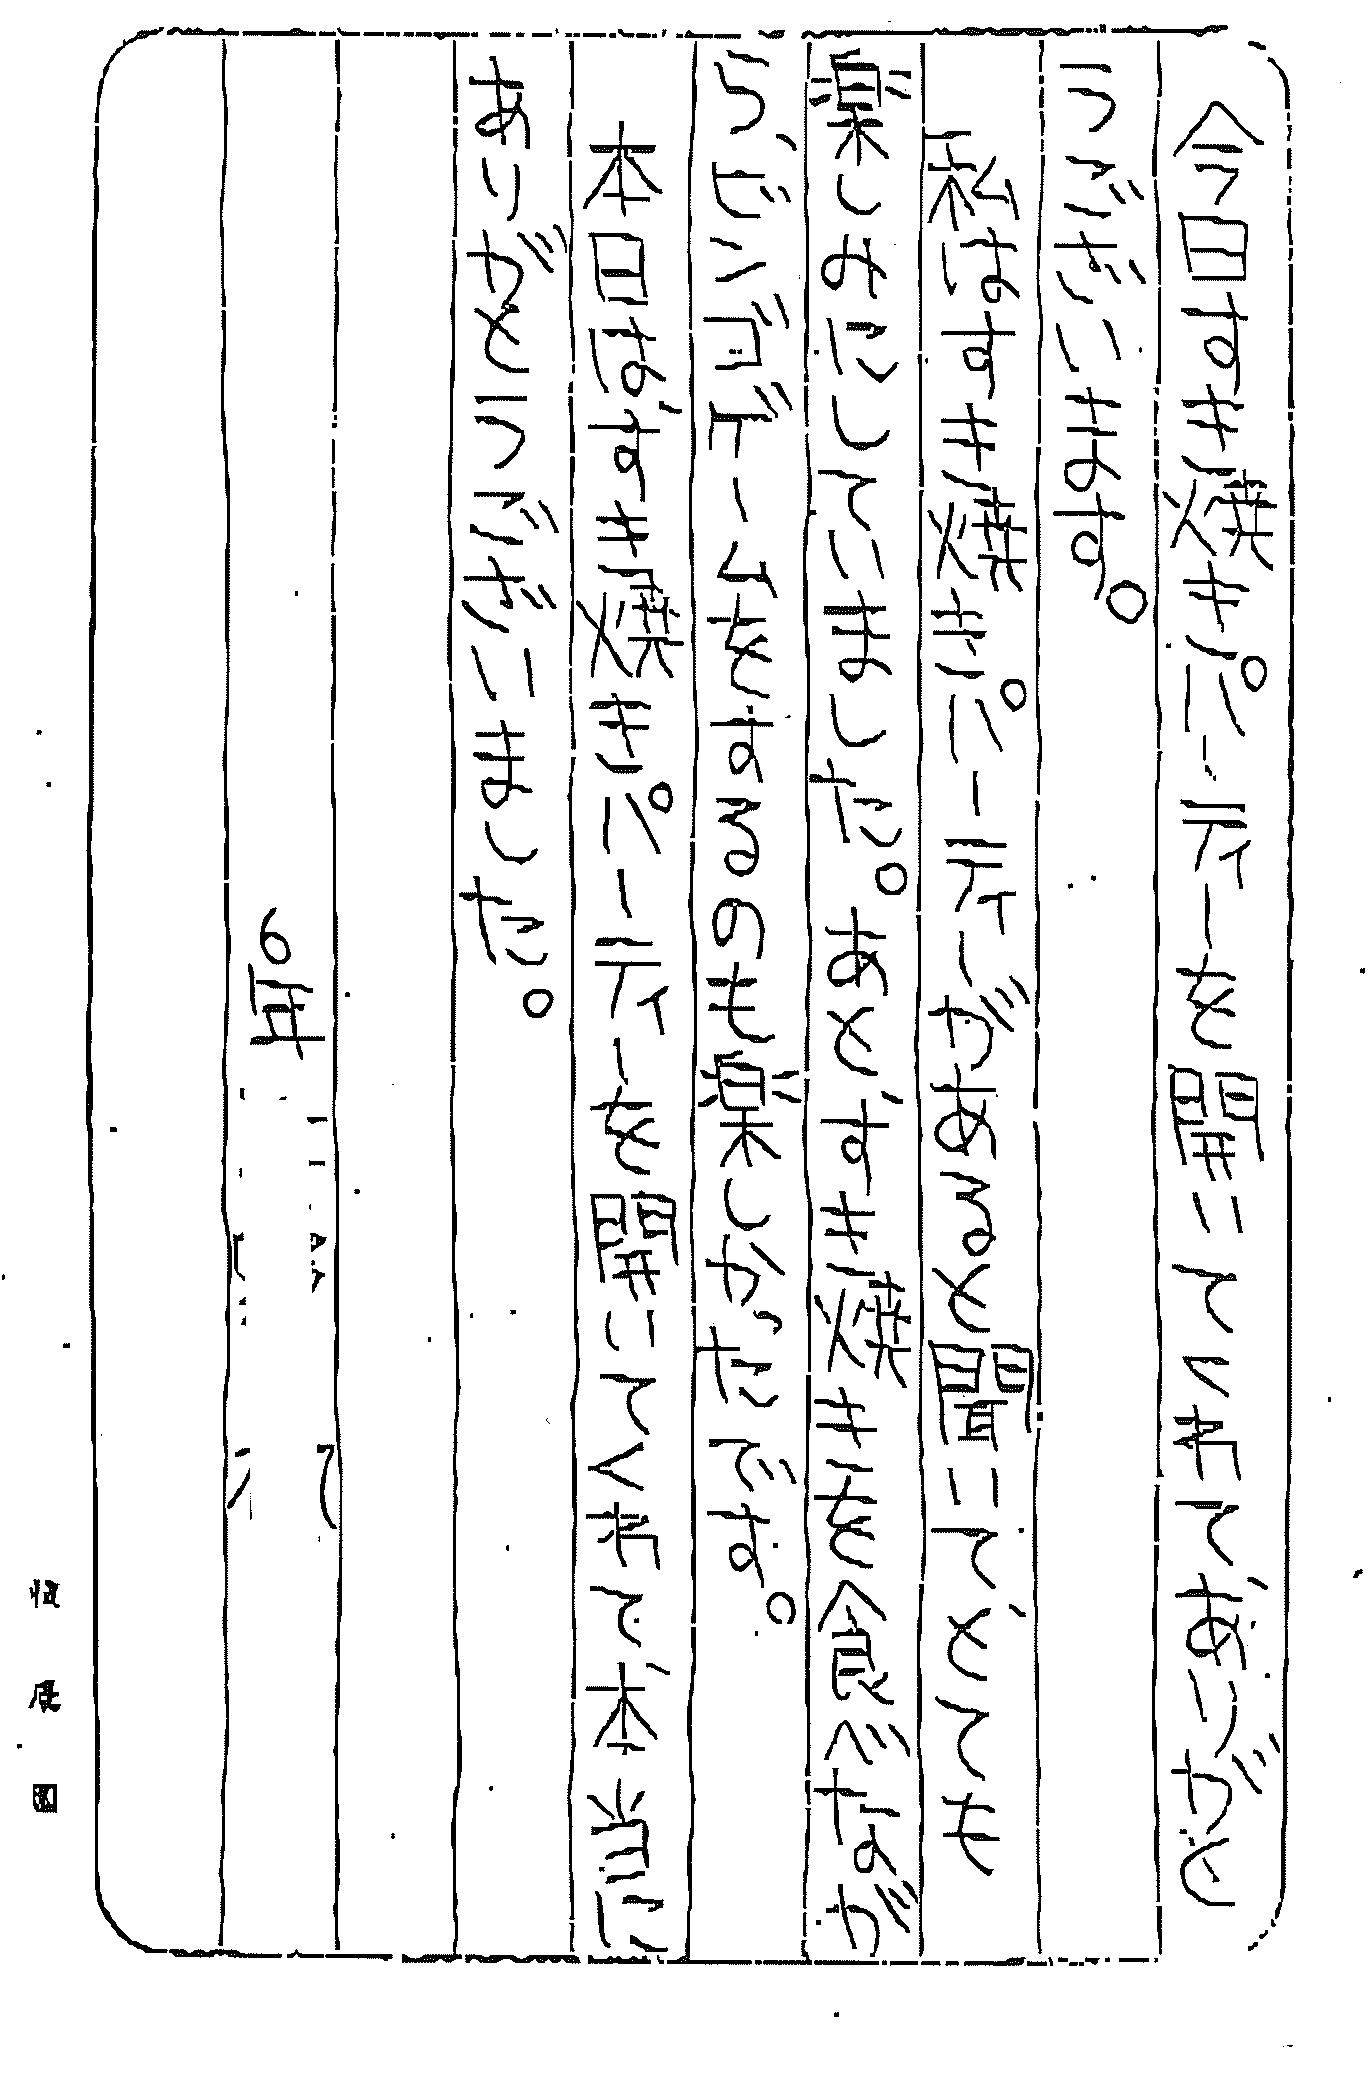 今日すき焼きパーティーを開いてくれてありがと
うございます。
私はすき焼きパーティーがあると聞いて、とても
楽しみにしていました。あと、すき焼きを食べなが
ら、ビンゴゲームをするのも楽しみだったです。
本日は、すき焼きパーティーを開いてくれて、本当に
ありがとうございました。
6年